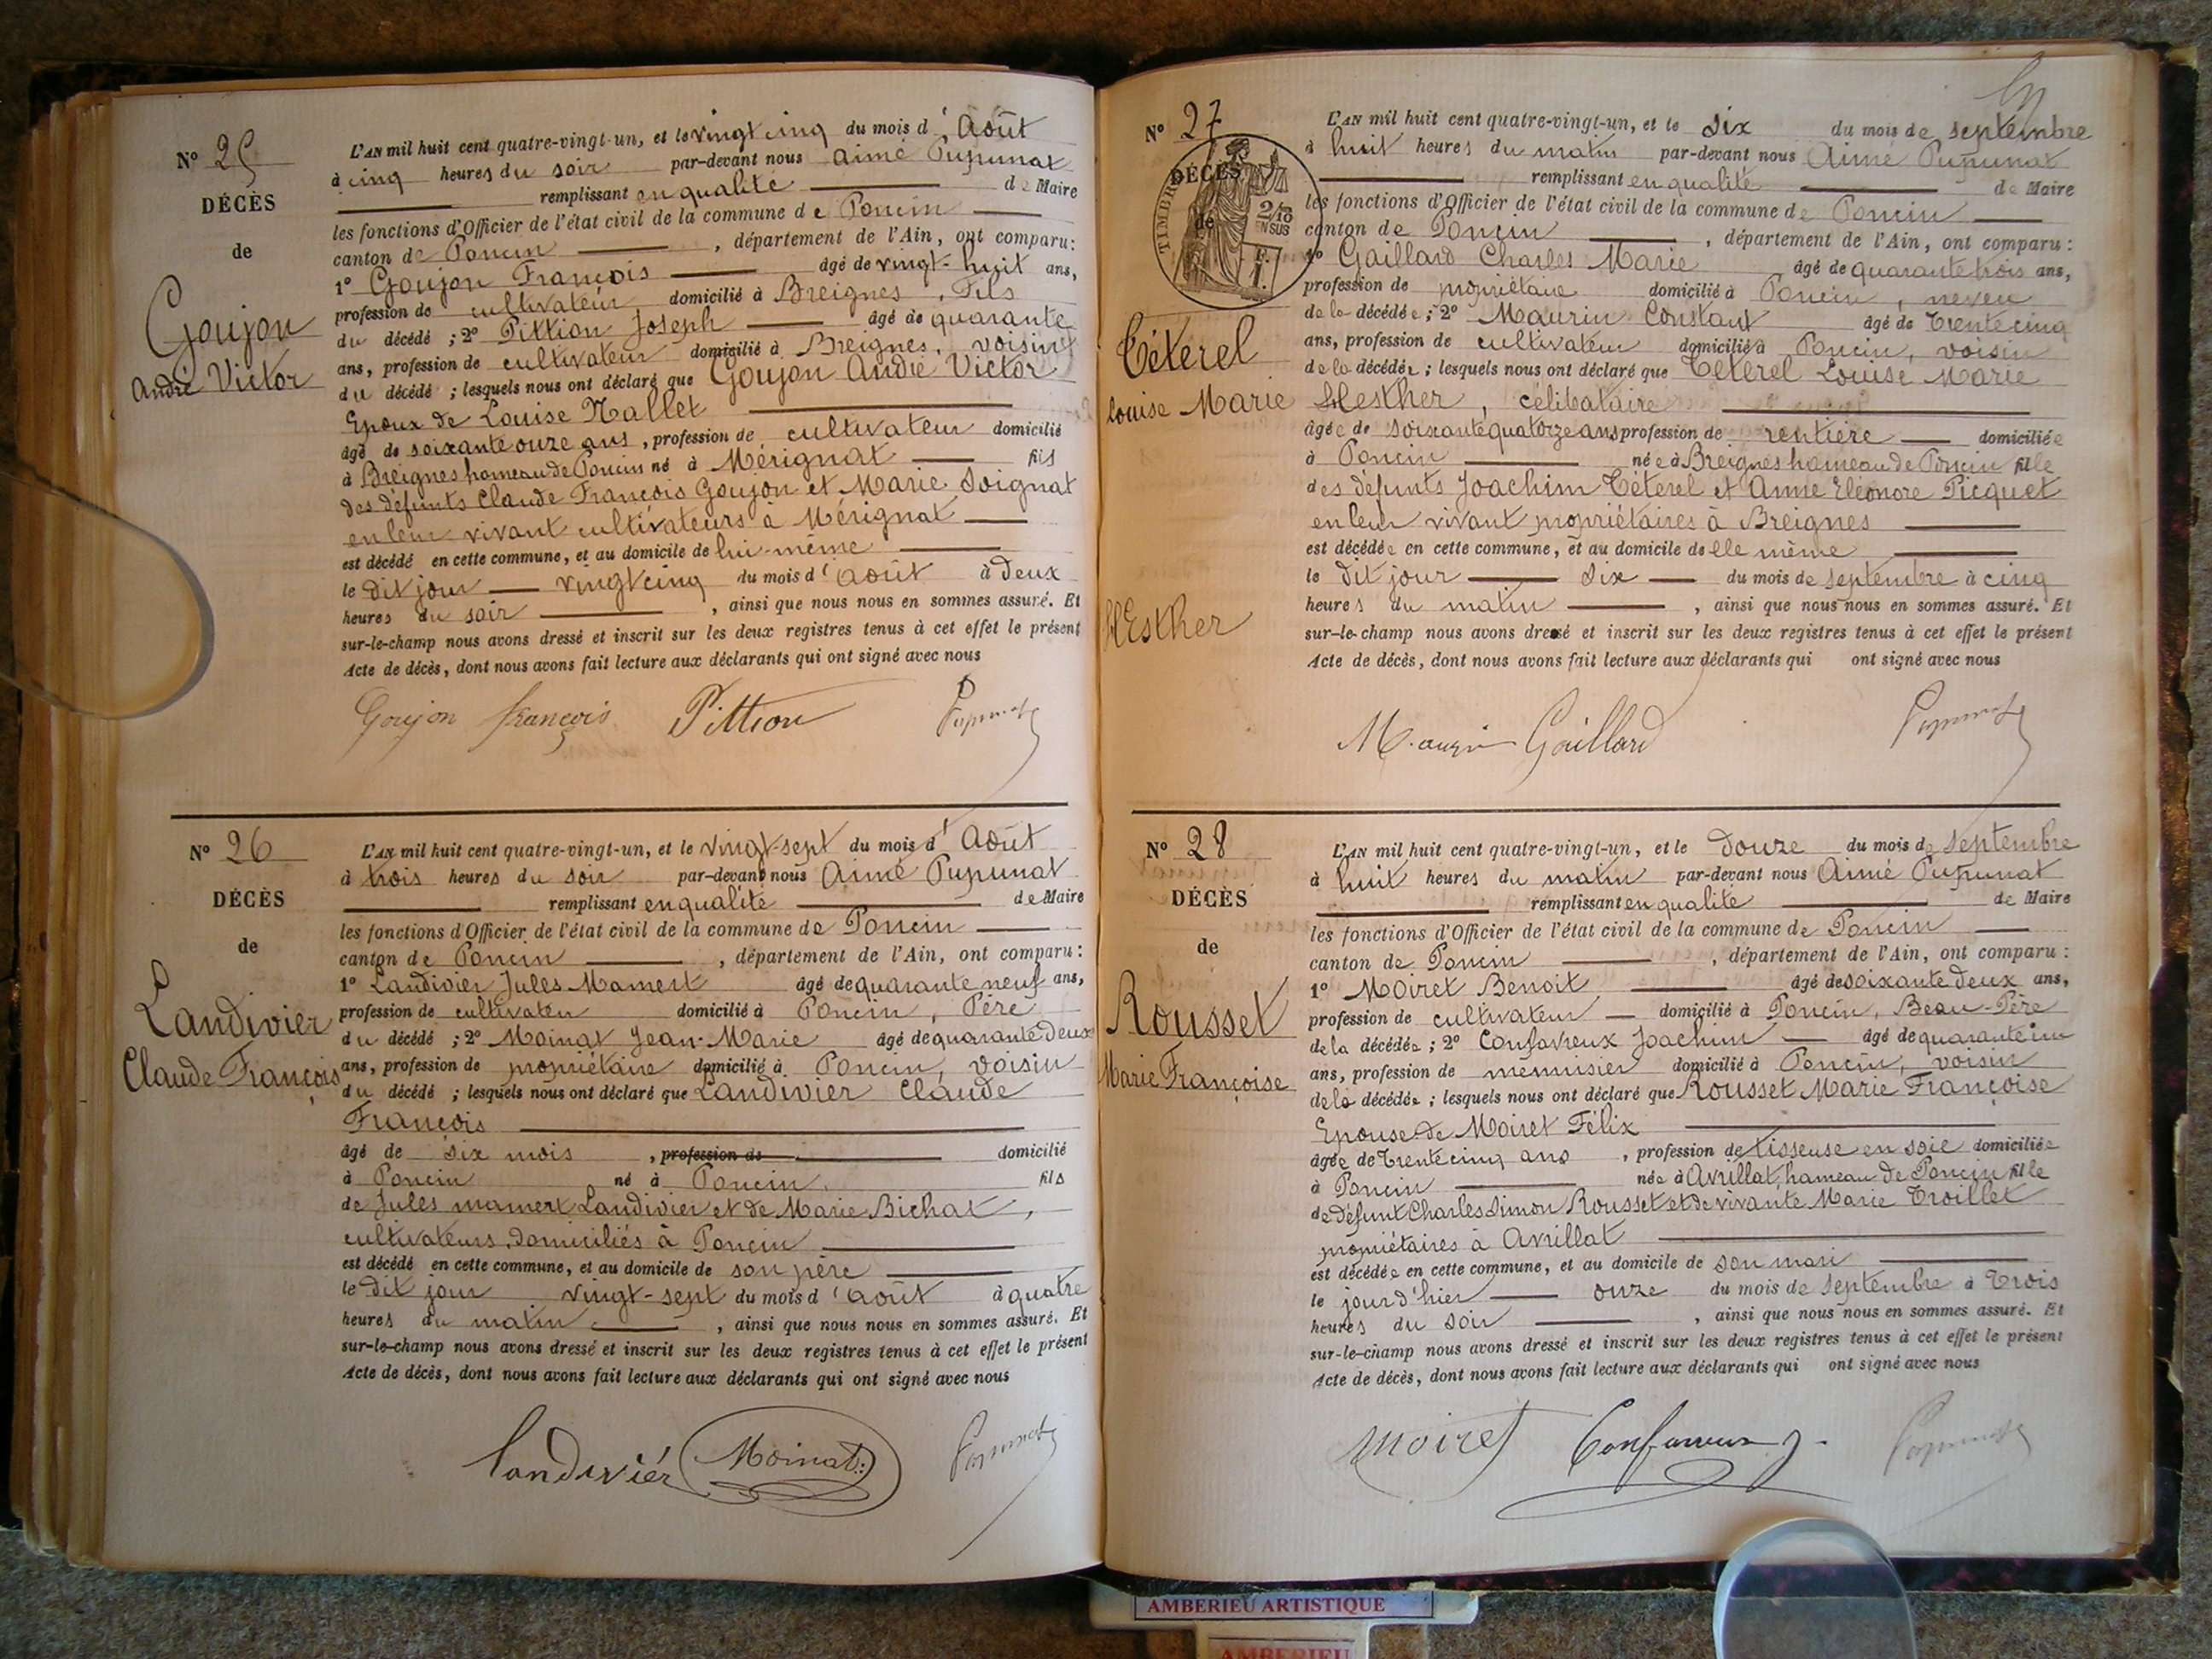 N° 25
DÉCÈS
de
Goujon
André Victor
L'AN mil huit cent quatre-vingt-un, et le vingt cinq du mois d'Août
à cinq heures du soir par-devant nous Aimé Pupunat
remplissant en qualité de Maire
les fonctions d'Officier de l'état civil de la commune de Poncin
canton de Poncin, département de l'Ain, ont comparu :
1° Goujon François âgé de vingt-huit ans,
profession de cultivateur domicilié à Breignes, Fils
du décédé ; 2° Pittion Joseph âgé de quarante
ans, profession de cultivateur domicilié à Breignes, voisin
du décédé ; lesquels nous ont déclaré que Goujon André Victor
Epoux de Louise Mallet
âgé de soixante onze ans, profession de cultivateur domicilié
à Breignes hameau de Poncin né à Mérignat fils
des défunts Claude François Goujon et Marie Soignat
en leur vivant cultivateurs à Mérignat
est décédé en cette commune, et au domicile de lui-même
le dit jour vingt cinq du mois d'août à deux
heures du soir, ainsi que nous nous en sommes assuré. Et
sur-le-champ nous avons dressé et inscrit sur les deux registres tenus à cet effet le présent
Acte de décès, dont nous avons fait lecture aux déclarants qui ont signé avec nous
Goujon françois Pittion Pupunat
N° 26
DÉCÈS
de
Landivier
Claude François
L'AN mil huit cent quatre-vingt-un, et le vingt-sept du mois d'Août
à trois heures du soir par-devant nous Aimé Pupunat
remplissant en qualité de Maire
les fonctions d'Officier de l'état civil de la commune de Poncin
canton de Poncin, département de l'Ain, ont comparu :
1° Landivier Jules Mamert âgé de quarante neuf ans,
profession de cultivateur domicilié à Poncin, Père
du décédé ; 2° Moinat Jean-Marie âgé de quarante deux
ans, profession de propriétaire domicilié à Poncin, voisin
du décédé ; lesquels nous ont déclaré que Landivier Claude
François
âgé de six mois, profession de domicilié
à Poncin né à Poncin. fils
de Jules mamert Landivier et de Marie Bichat,
cultivateurs domiciliés à Poncin
est décédé en cette commune, et au domicile de son père
le dit jour vingt-sept du mois d'août à quatre
heures du matin, ainsi que nous nous en sommes assuré. Et
sur-le-champ nous avons dressé et inscrit sur les deux registres tenus à cet effet le présent
Acte de décès, dont nous avons fait lecture aux déclarants qui ont signé avec nous
Landiviér Moinat Pupunat
N° 27
DÉCÈS
de
TIMBRE
2/10
EN SUS
Téterel
Louise Marie
Hesther
L'AN mil huit cent quatre-vingt-un, et le six du mois de septembre
à huit heures du matin par-devant nous Aimé Pupunat
remplissant en qualité de Maire
les fonctions d'Officier de l'état civil de la commune de Poncin
canton de Poncin, département de l'Ain, ont comparu :
1° Gaillard Charles Marie âgé de quarante trois ans,
profession de propriétaire domicilié à Poncin, neveu
de la décédée ; 2° Maurin Constant âgé de trente cinq
ans, profession de cultivateur domicilié à Poncin, voisin
de la décédée ; lesquels nous ont déclaré que Téterel Louise Marie
Hesther, célibataire
âgée de soixante quatorze ans profession de rentière domiciliée
à Poncin née à Breignes hameau de Poncin fille
des défunts Joachim Téterel et Anne Eléonore Picquet
en leur vivant propriétaires à Breignes
est décédée en cette commune, et au domicile de elle même
le dit jour six du mois de septembre à cinq
heures du matin, ainsi que nous nous en sommes assuré. Et
sur-le-champ nous avons dressé et inscrit sur les deux registres tenus à cet effet le présent
Acte de décès, dont nous avons fait lecture aux déclarants qui ont signé avec nous
Maurin Gaillard Pupunat
N° 28
DÉCÈS
de
Rousset
Marie Françoise
L'AN mil huit cent quatre-vingt-un, et le douze du mois de septembre
à huit heures du matin par-devant nous Aimé Pupunat
remplissant en qualité de Maire
les fonctions d'Officier de l'état civil de la commune de Poncin
canton de Poncin, département de l'Ain, ont comparu :
1° Moiret Benoit âgé de soixante deux ans,
profession de cultivateur domicilié à Poncin, Beau-Père
de la décédée ; 2° Confavreux Joachim âgé de quarante un
ans, profession de menuisier domicilié à Poncin, voisin
de la décédée ; lesquels nous ont déclaré que Rousset Marie Françoise
Epouse de Moiret Félix
âgée de trente cinq ans, profession de tisseuse en soie domiciliée
à Poncin née à Avrillat, hameau de Poncin fille
de défunt Charles Simon Rousset et de vivante Marie Troillet
propriétaires à Avrillat
est décédée en cette commune, et au domicile de son mari
le jour d'hier onze du mois de septembre à trois
heures du soir, ainsi que nous nous en sommes assuré. Et
sur-le-champ nous avons dressé et inscrit sur les deux registres tenus à cet effet le présent
Acte de décès, dont nous avons fait lecture aux déclarants qui ont signé avec nous
Moiret Confavreux J. Pupunat
AMBERIEU ARTISTIQUE
AMBERIEU